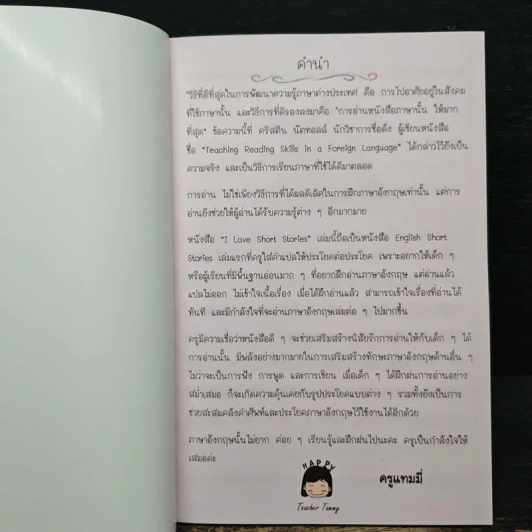 คำนำ
"วิธีที่ดีที่สุดในการพัฒนาความรู้ภาษาต่างประเทศ คือ การไปอาศัยอยู่ในสังคม
ที่ใช้ภาษานั้น และวิธีการที่ดีรองลงมาคือ "การอ่านหนังสือภาษานั้น ให้มาก
ที่สุด" ข้อความนี้ที่ คริสติน นัตทอลล์ นักวิชาการชื่อดัง ผู้เขียนหนังสือ
ชื่อ "Teaching Reading Skills in a Foreign Language" ได้กล่าวไว้ยังเป็น
ความจริง และเป็นวิธีการเรียนภาษาที่ใช้ได้ดีมาตลอด
การอ่าน ไม่ใช่เพียงวิธีการที่ได้ผลดีเลิศในการฝึกภาษาอังกฤษเท่านั้น แต่การ
อ่านยังช่วยให้ผู้อ่านได้รับความรู้ต่าง ๆ อีกมากมาย
หนังสือ "I Love Short Stories" เล่มนี้ถือเป็นหนังสือ English Short
Stories เล่มแรกที่ครูใส่คำแปลให้ประโยคต่อประโยค เพราะอยากให้เด็ก ๆ
หรือผู้เรียนที่มีพื้นฐานอ่อนมาก ๆ ที่อยากฝึกอ่านภาษาอังกฤษ แต่อ่านแล้ว
แปลไม่ออก ไม่เข้าใจเนื้อเรื่อง เมื่อได้ฝึกอ่านแล้ว สามารถเข้าใจเรื่องที่อ่านได้
ทันที และมีกำลังใจที่จะอ่านภาษาอังกฤษเล่มต่อ ๆ ไปมากขึ้น
ครูมีความเชื่อว่าหนังสือดี ๆ จะช่วยเสริมสร้างนิสัยรักการอ่านให้กับเด็ก ๆ ได้
การอ่านนั้น มีพลังอย่างมากมายในการเสริมสร้างทักษะภาษาอังกฤษด้านอื่น ๆ
ไม่ว่าจะเป็นการฟัง การพูด และการเขียน เมื่อเด็ก ๆ ได้ฝึกฝนการอ่านอย่าง
สม่ำเสมอ ก็จะเกิดความคุ้นเคยกับรูปประโยคแบบต่าง ๆ รวมทั้งยังเป็นการ
ช่วยสะสมคลังคำศัพท์และประโยคภาษาอังกฤษไว้ใช้งานได้อีกด้วย
ภาษาอังกฤษนั้นไม่ยาก ค่อย ๆ เรียนรู้และฝึกฝนไปนะคะ ครูเป็นกำลังใจให้
เสมอค่ะ
HAPPY
Teacher Tammy
ครูแทมมี่